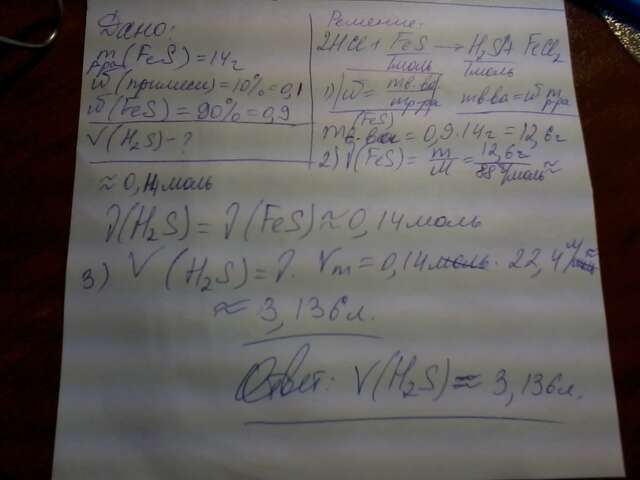 Дано:
m р-ра (FeS) = 14г
ω (примеси) = 10% = 0,1
ω (FeS) = 90% = 0,9
V(H₂S) - ?
Решение:
2HCl + FeS → H₂S↑ + FeCl₂
1моль 1моль
1) ω = mв.ва / mр-ра mв-ва = ω · mр-ра
mв-ва (FeS) = 0,9 · 14г = 12,6г
2) ν(FeS) = m/M = 12,6г / 88 г/моль ≈
≈ 0,14 моль
ν(H₂S) = ν(FeS) ≈ 0,14 моль
3) V(H₂S) = ν · Vm = 0,14 моль · 22,4 л/моль ≈
≈ 3,136 л.
Ответ: V(H₂S) ≈ 3,136 л.